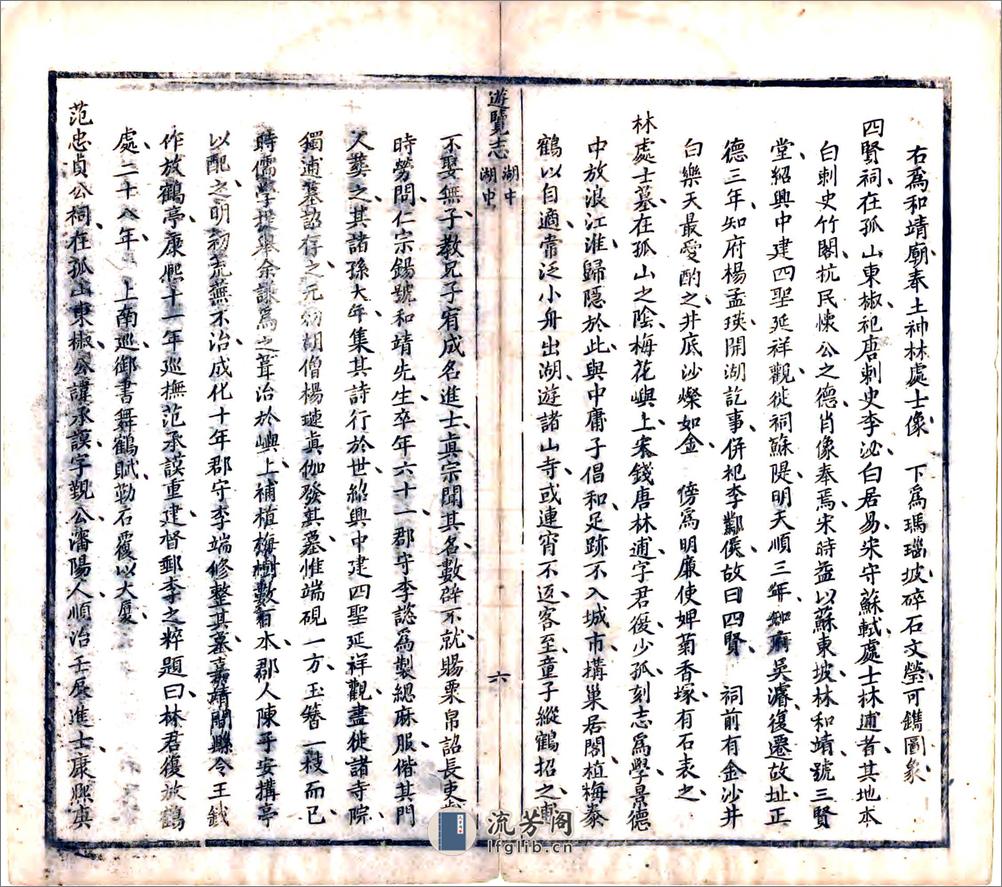 右爲和靖廟奉土神林處士像　下爲瑪瑙坡碎石文瑩可鐫圖象
四賢祠在孤山東椒祀唐刺史李泌白居易宋守蘇軾處士林逋者其地本
白刺史竹閣杭民懷公之德肖像奉焉宋時益以蘇東坡林和靖號三賢
堂紹興中建四聖延祥觀徙祠蘇隄明天順三年知府吳濬復遷故址正
德三年知府楊孟瑛開湖訖事併祀李鄴侯故曰四賢　祠前有金沙井
白樂天最愛酌之井底沙燦如金　傍爲明廉使婢菊香塚有石表之
林處士墓在孤山之陰梅花嶼上宋錢唐林逋字君復少孤刻志爲學景德
中放浪江淮歸隱於此與中庸子倡和足跡不入城市搆巢居閣植梅泰
鶴以自適常泛小舟出湖遊諸山寺或連宵不返客至童子縱鶴招之
遊覽志　湖中　湖史　六
不娶無子教兄子宥成名進士眞宗聞其名數辟不就賜粟帛詔長吏
時勞問仁宗錫號和靖先生卒年六十一郡守李諮爲製緦麻服偕其門
人葬之其諸孫大年集其詩行於世紹興中建四聖延祥觀盡徙諸寺院
獨逋墓詔存之元初胡僧楊璉眞伽發其墓惟端硯一方玉簪一枝而已
時儒學提舉余謙爲之葺治於嶼上補植梅樹數百本郡人陳子安搆亭
以配之明初荒蕪不治成化十年郡守李端修整其墓嘉靖間縣令王釴
作放鶴亭康熙十一年巡撫范承謨重建督郵李之粹題曰林君復放鶴
處二十八年　上南巡御書舞鶴賦勒石覆以大廈
范忠貞公祠在孤山東椒公諱承謨字覲公瀋陽人順治壬辰進士康熙
流芳阁
lfglib.cn